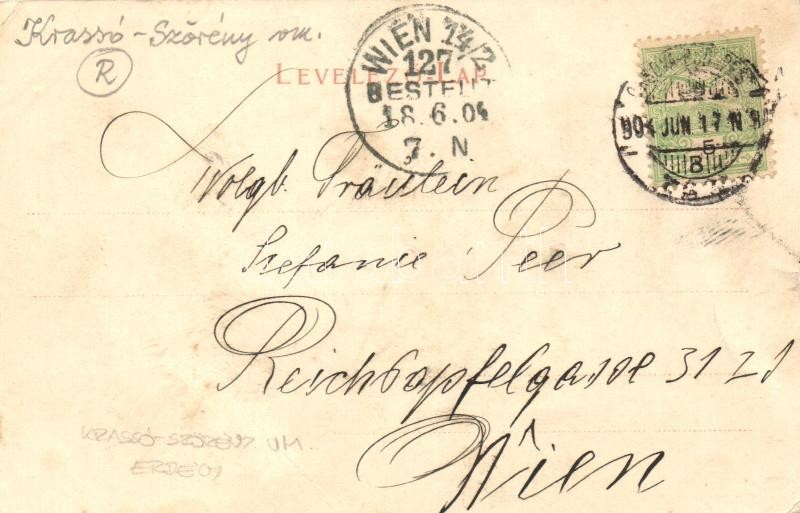 Krassó-Szörény vm.
R
LEVELEZŐ-LAP
WIEN 14/2
127
BESTELLT
18.6.04
7. N
904 JUN 17 N
5
B
Wolgb. Fräulein
Stefanie Peer
Reichsapfelgasse 31 21
Wien
KRASSÓ-SZÖRÉNY VM
ERDÉLY